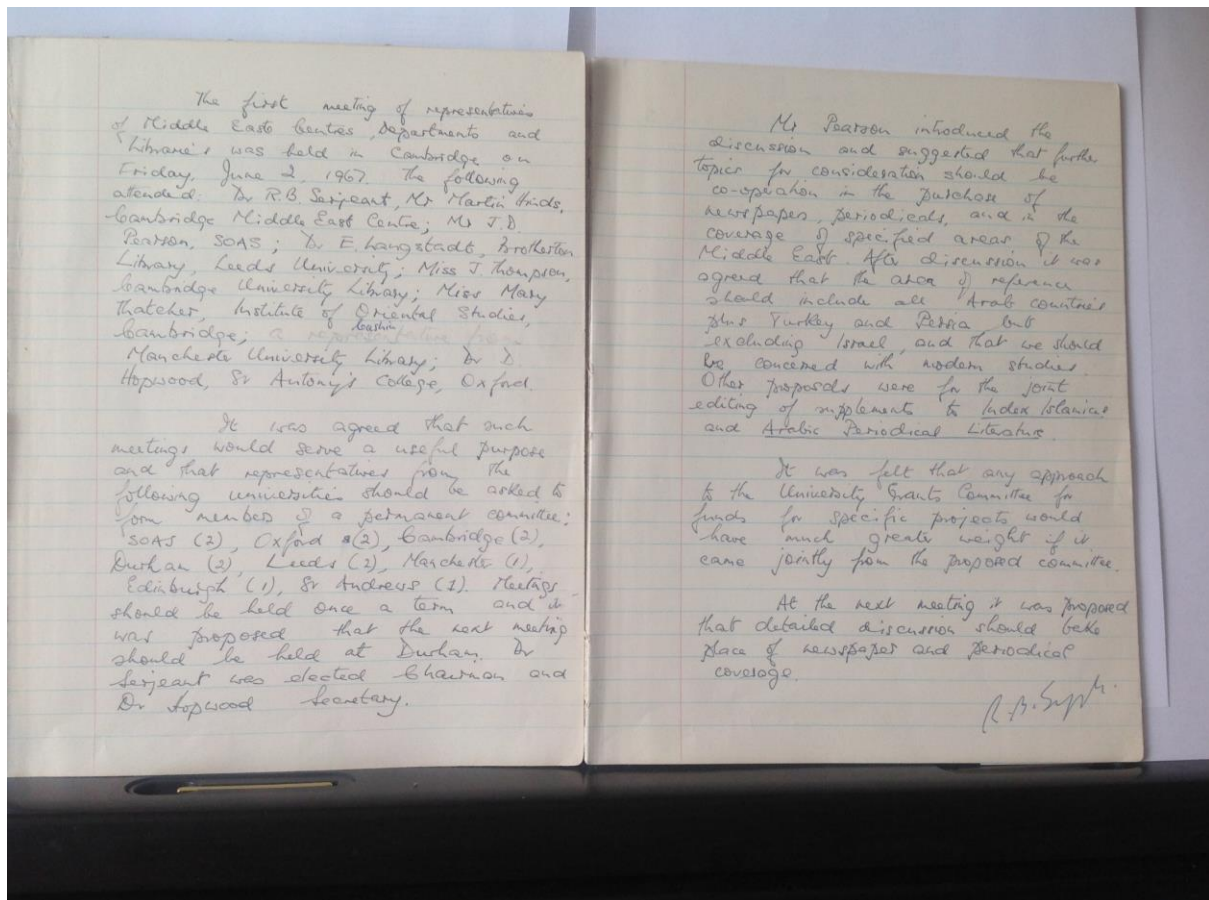 The first meeting of representatives
of Middle East Centres, Departments and
Libraries was held in Cambridge on
Friday, June 2, 1967. The following
attended: Dr R.B. Serjeant, Mr Martin Hinds,
Cambridge Middle East Centre; Mr J.D.
Pearson, SOAS; Dr E. Langstadt, Brotherton
Library, Leeds University; Miss J. Thompson,
Cambridge University Library; Miss Mary
Thatcher, Institute of Oriental Studies,
Cambridge; a representative from
Manchester University Library; Dr D.
Hopwood, St Antony's College, Oxford.
It was agreed that such
meetings would serve a useful purpose
and that representatives from the
following universities should be asked to
form members of a permanent committee:
SOAS (2), Oxford (2), Cambridge (2),
Durham (2), Leeds (2), Manchester (1),
Edinburgh (1), St Andrews (1). Meetings
should be held once a term and it
was proposed that the next meeting
should be held at Durham. Dr
Serjeant was elected Chairman and
Dr Hopwood Secretary.
Mr Pearson introduced the
discussion and suggested that further
topics for consideration should be
co-operation in the purchase of
newspapers, periodicals, and in the
coverage of specified areas of the
Middle East. After discussion it was
agreed that the area of reference
should include all Arab countries
plus Turkey and Persia, but
excluding Israel, and that we should
be concerned with modern studies.
Other proposals were for the joint
editing of supplements to Index Islamicus
and Arabic Periodical Literature.
It was felt that any approach
to the University Grants Committee for
funds for specific projects would
have much greater weight if it
came jointly from the proposed committee.
At the next meeting it was proposed
that detailed discussion should take
place of newspaper and periodical
coverage.